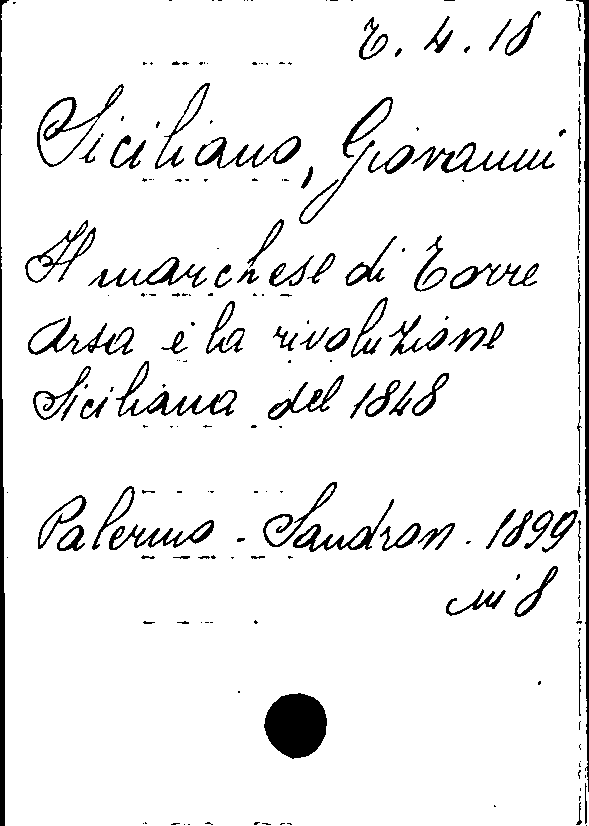 T. 4. 18
Siciliano, Giovanni
Il marchese di Torre
Arsa e la rivoluzione
Siciliana del 1848
Palermo - Sandron - 1899
in 8